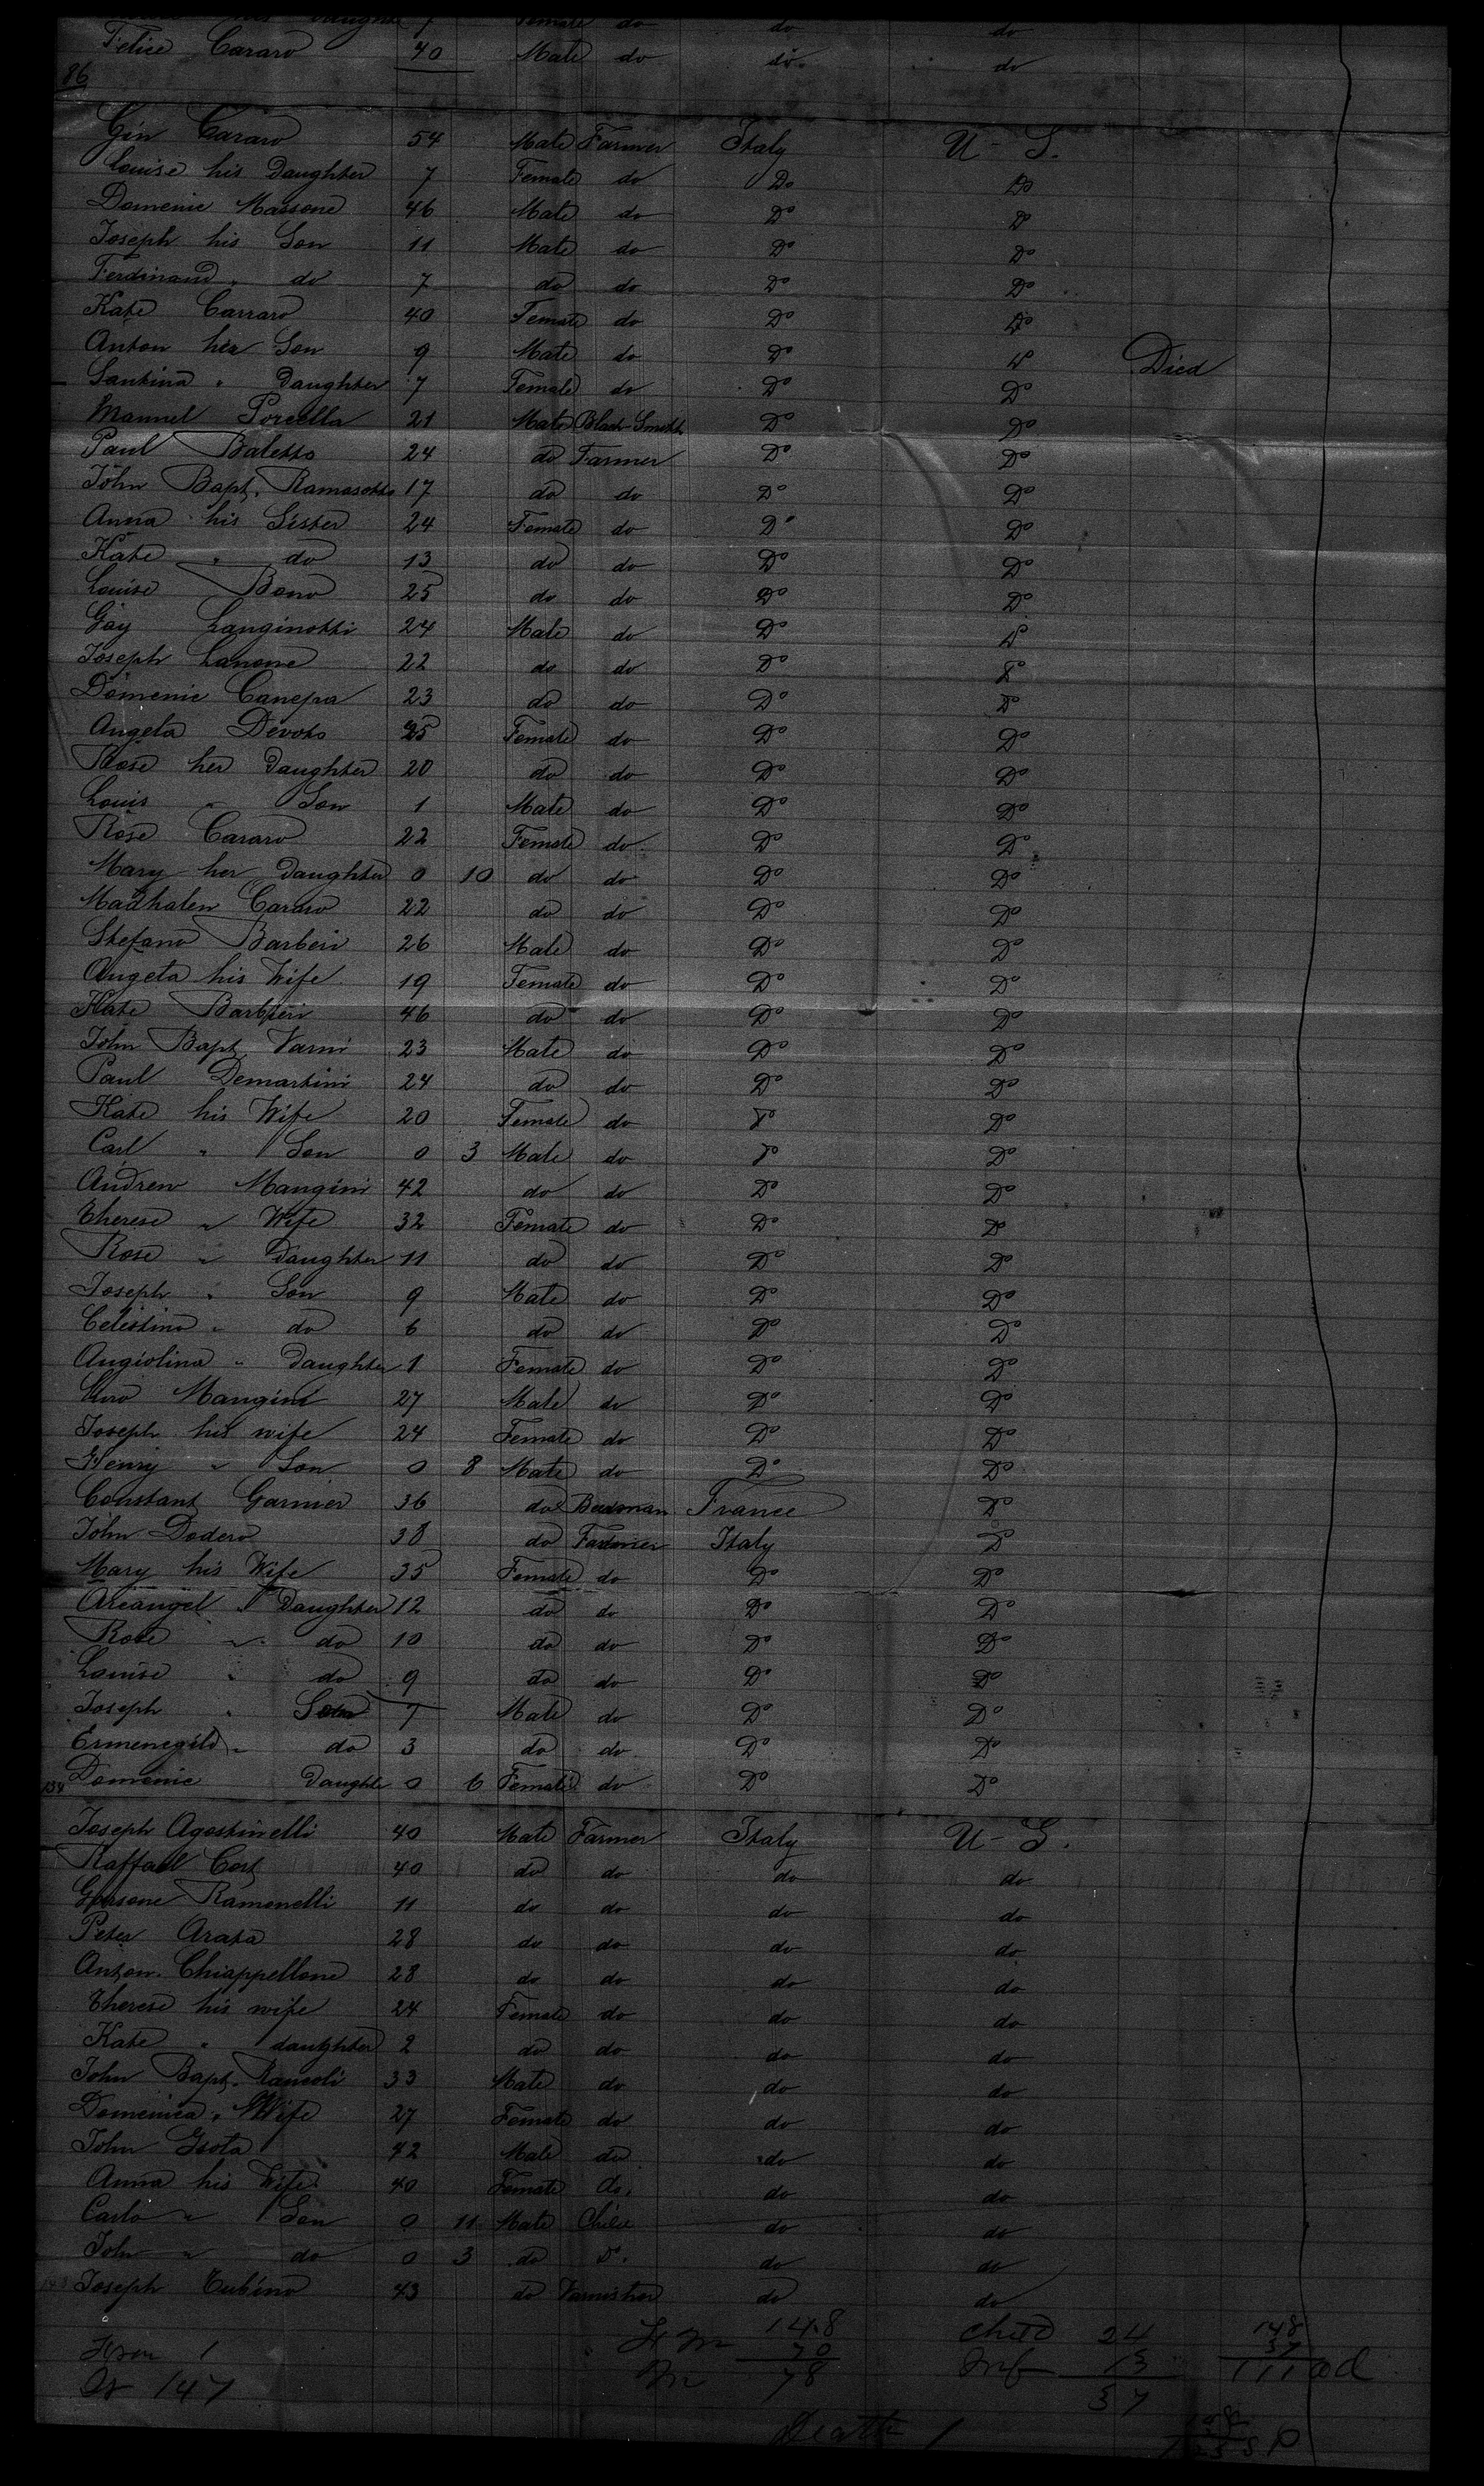 his Daughter 7 Female do do do
Felice Cararo 40 Male do do do
86
Gin Cararo 54 Male Farmer Italy U-S.
Louise his Daughter 7 Female do Do Do
Domenic Massone 46 Male do Do Do
Joseph his Son 11 Male do Do Do
Ferdinand " do 7 do do Do Do
Kate Carraro 40 Female do Do Do
Anton her Son 9 Male do Do Do Died
Santina " Daughter 7 Female do Do Do
Manuel Porcella 21 Male Black-Smith Do Do
Paul Baletto 24 do Farmer Do Do
John Bapt. Ramasotto 17 do do Do Do
Anna his Sister 24 Female do Do Do
Kate " do 13 do do Do Do
Louise Bono 25 do do Do Do
Gay Langinotti 24 Male do Do Do
Joseph Lanone 22 do do Do Do
Domenic Canepa 23 do do Do Do
Angela Devoto 25 Female do Do Do
Rose her Daughter 20 do do Do Do
Louis " Son 1 Male do Do Do
Rose Cararo 22 Female do Do Do
Mary her Daughter 0 10 do do Do Do
Madhalen Cararo 22 do do Do Do
Stefano Barberi 26 Male do Do Do
Angela his Wife 19 Female do Do Do
Kate Barbieri 46 do do Do Do
John Bapt. Varni 23 Male do Do Do
Paul Demartini 24 do do Do Do
Kate his Wife 20 Female do Do Do
Carl " Son 0 3 Male do Do Do
Andrew Mangini 42 do do Do Do
Therese " Wife 32 Female do Do Do
Rose " Daughter 11 do do Do Do
Joseph " Son 9 Male do Do Do
Celestino " do 6 do do Do Do
Angiolina " Daughter 1 Female do Do Do
Mangini 27 Male do Do Do
Joseph his wife 24 Female do Do Do
Henry " Son 0 8 Male do Do Do
Constant Garnier 36 do France Do
John Dodero 38 do Farmer Italy Do
Mary his Wife 35 Female do Do Do
Arcangel " Daughter 12 do do Do Do
Rose " do 10 do do Do Do
Louise " do 9 do do Do Do
Joseph " Son 7 Male do Do Do
Ermenegild " do 3 do do Do Do
134 Domenic Daughter 0 6 Female do Do Do
Joseph Agostinelli 40 Male Farmer Italy U-S.
Raffael Cort 40 do do do do
Ramonelli 11 do do do do
Peter Arata 28 do do do do
Anton. Chiappellone 28 do do do do
Therese his wife 24 Female do do do
Kate " daughter 2 do do do do
John Bapt. Rancoli 33 Male do do do
Domenica " Wife 27 Female do do do
John Gsota 42 Male do do do
Anna his Wife 40 Female do. do do
Carlo " Son 0 11 Male Child do do
John " do 0 3 do Do. do do
Joseph Cubino 43 do Varnisher do do
148 Child 24 148
F m 70 Inf 13 37
M 78 37 111 ad
1
147
Death 1